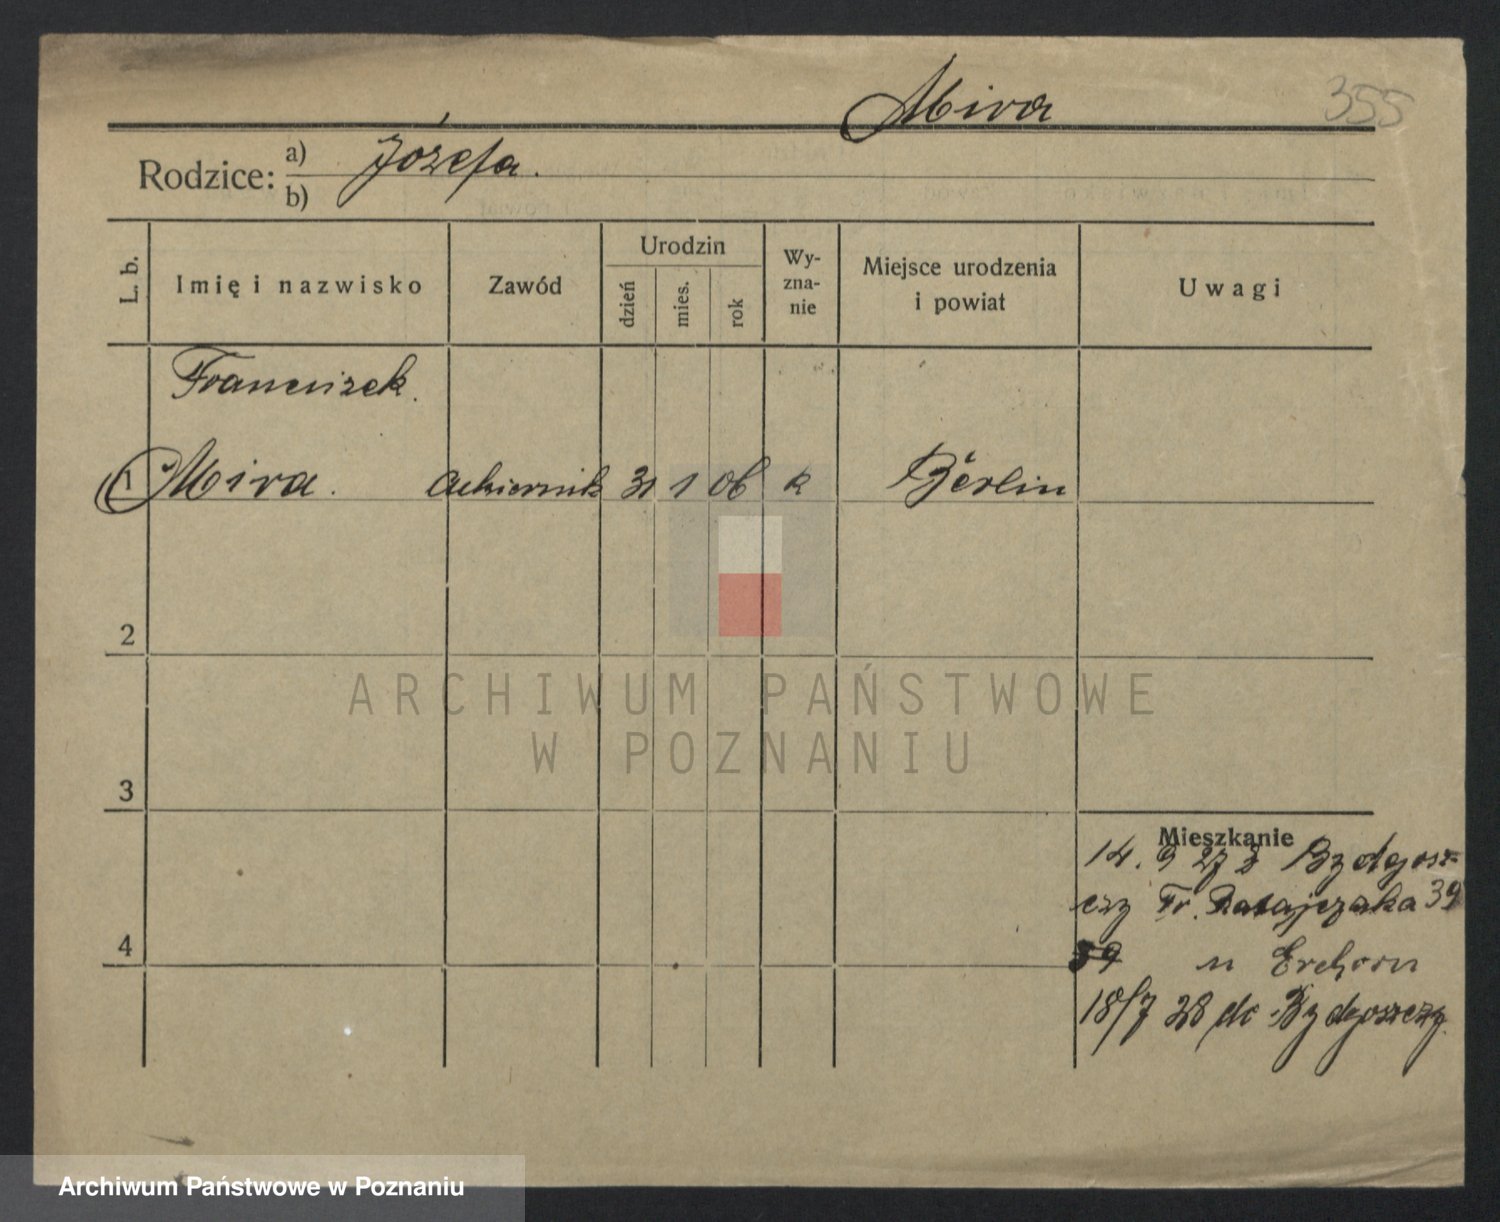 Mira 355
Rodzice: a) Józefa.
b)
L. b. Imię i nazwisko Zawód Urodzin dzień mies. rok Wy-zna-nie Miejsce urodzenia i powiat Uwagi
Franciszek.
1 Mira. cukiernik 31 1 06 k Berlin
2
ARCHIWUM PAŃSTWOWE
W POZNANIU
3
Mieszkanie
14. 9 27 z Bydgosz=
czy Fr. Ratajczaka 39
4
39 u
18/7 28 do Bydgoszczy.
Archiwum Państwowe w Poznaniu